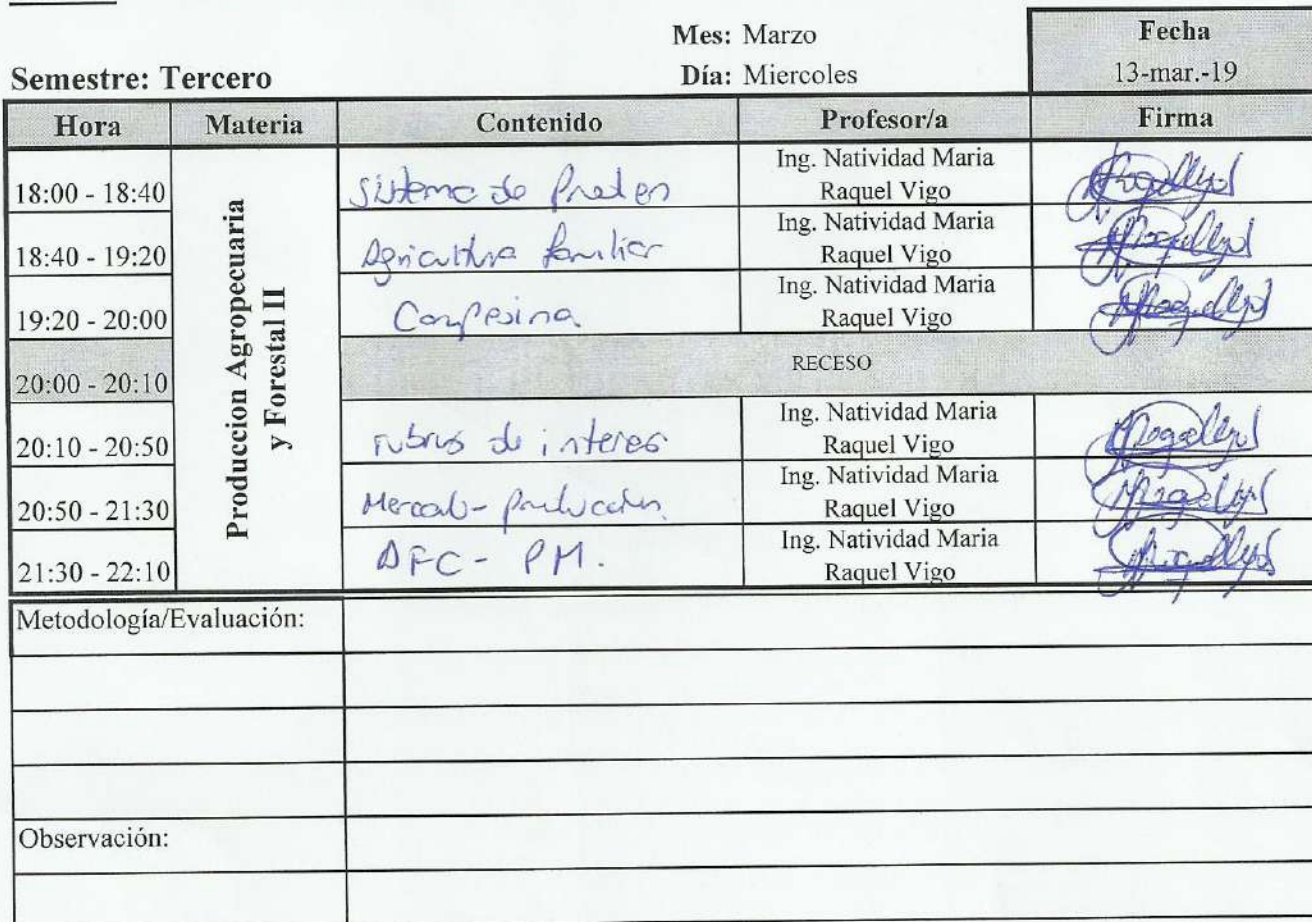 Mes: Marzo
Fecha
Semestre: Tercero
Día: Miercoles
13-mar.-19
Hora Materia Contenido Profesor/a Firma
Produccion Agropecuaria
y Forestal II
18:00 - 18:40 Sistema de Ing. Natividad Maria
Raquel Vigo
18:40 - 19:20 Agricultura familiar Ing. Natividad Maria
Raquel Vigo
19:20 - 20:00 Campesina Ing. Natividad Maria
Raquel Vigo
20:00 - 20:10 RECESO
20:10 - 20:50 rubros de interes Ing. Natividad Maria
Raquel Vigo
20:50 - 21:30 Mercado - Ing. Natividad Maria
Raquel Vigo
21:30 - 22:10 AFC - PM. Ing. Natividad Maria
Raquel Vigo
Metodología/Evaluación:
Observación: